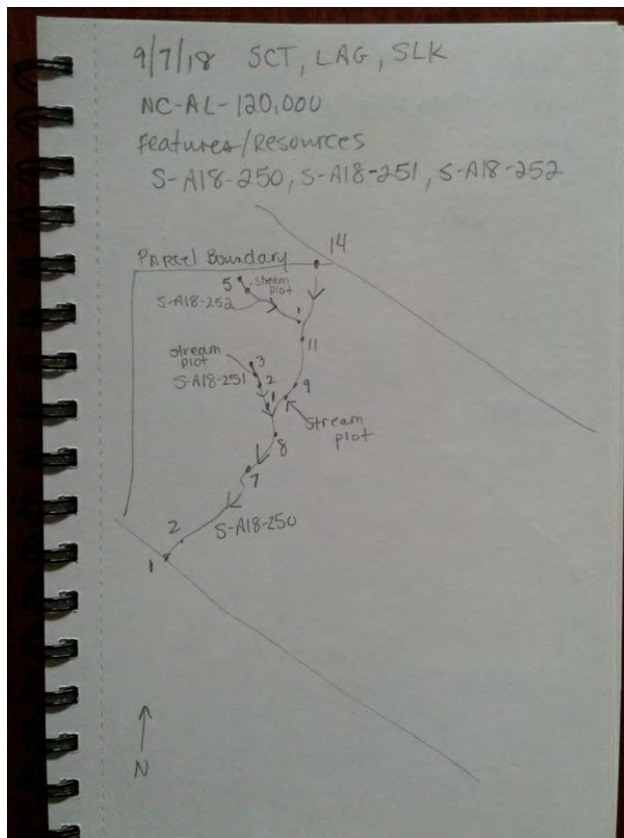 9/7/18 SCT, LAG, SLK
NC-AL-120.000
Features/Resources
S-A18-250, S-A18-251, S-A18-252
PARCEL Boundary
14
5
stream plot
S-A18-252
1
11
stream plot
3
S-A18-251
2
1
9
stream plot
8
7
2
S-A18-250
1
N